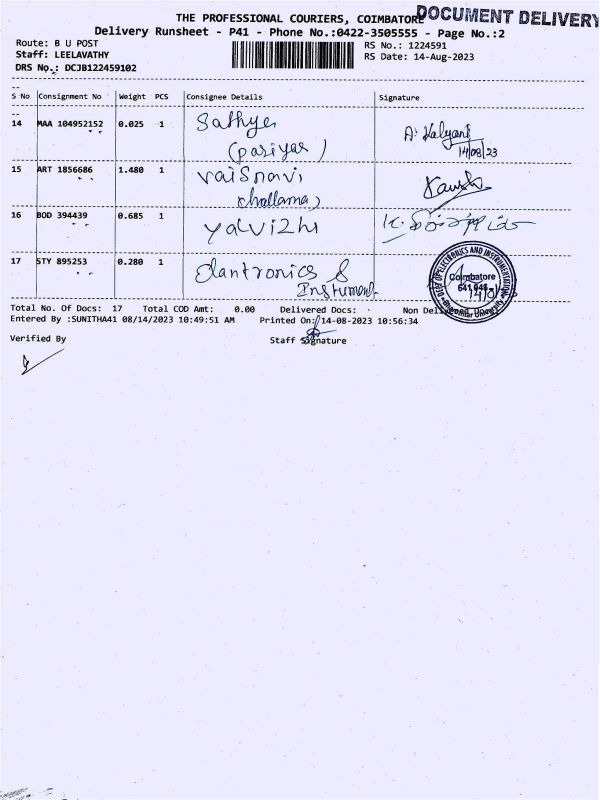 THE PROFESSIONAL COURIERS, COIMBATORE DOCUMENT DELIVERY
Delivery Runsheet - P41 - Phone No.:0422-3505555 - Page No.:2
Route: B U POST
RS No.: 1224591
Staff: LEELAVATHY
RS Date: 14-Aug-2023
DRS No.: DCJB122459102
S No Consignment No Weight PCS Consignee Details Signature
14 MAA 104952152 0.025 1 Sathya
(pariyar) A. Kalyani
14/08/23
15 ART 1856686 1.480 1 vaisnavi
(challama)
16 BOD 394439 0.685 1 yalvizhi
17 STY 895253 0.280 1 Elantronics &
Instrument
DEPT OF ELECTRONICS AND INSTRUMENTATION
Coimbatore
641 046
Total No. Of Docs: 17 Total COD Amt: 0.00 Delivered Docs: Non Delivered Docs:
Entered By :SUNITHA41 08/14/2023 10:49:51 AM Printed On: 14-08-2023 10:56:34
Verified By Staff Signature